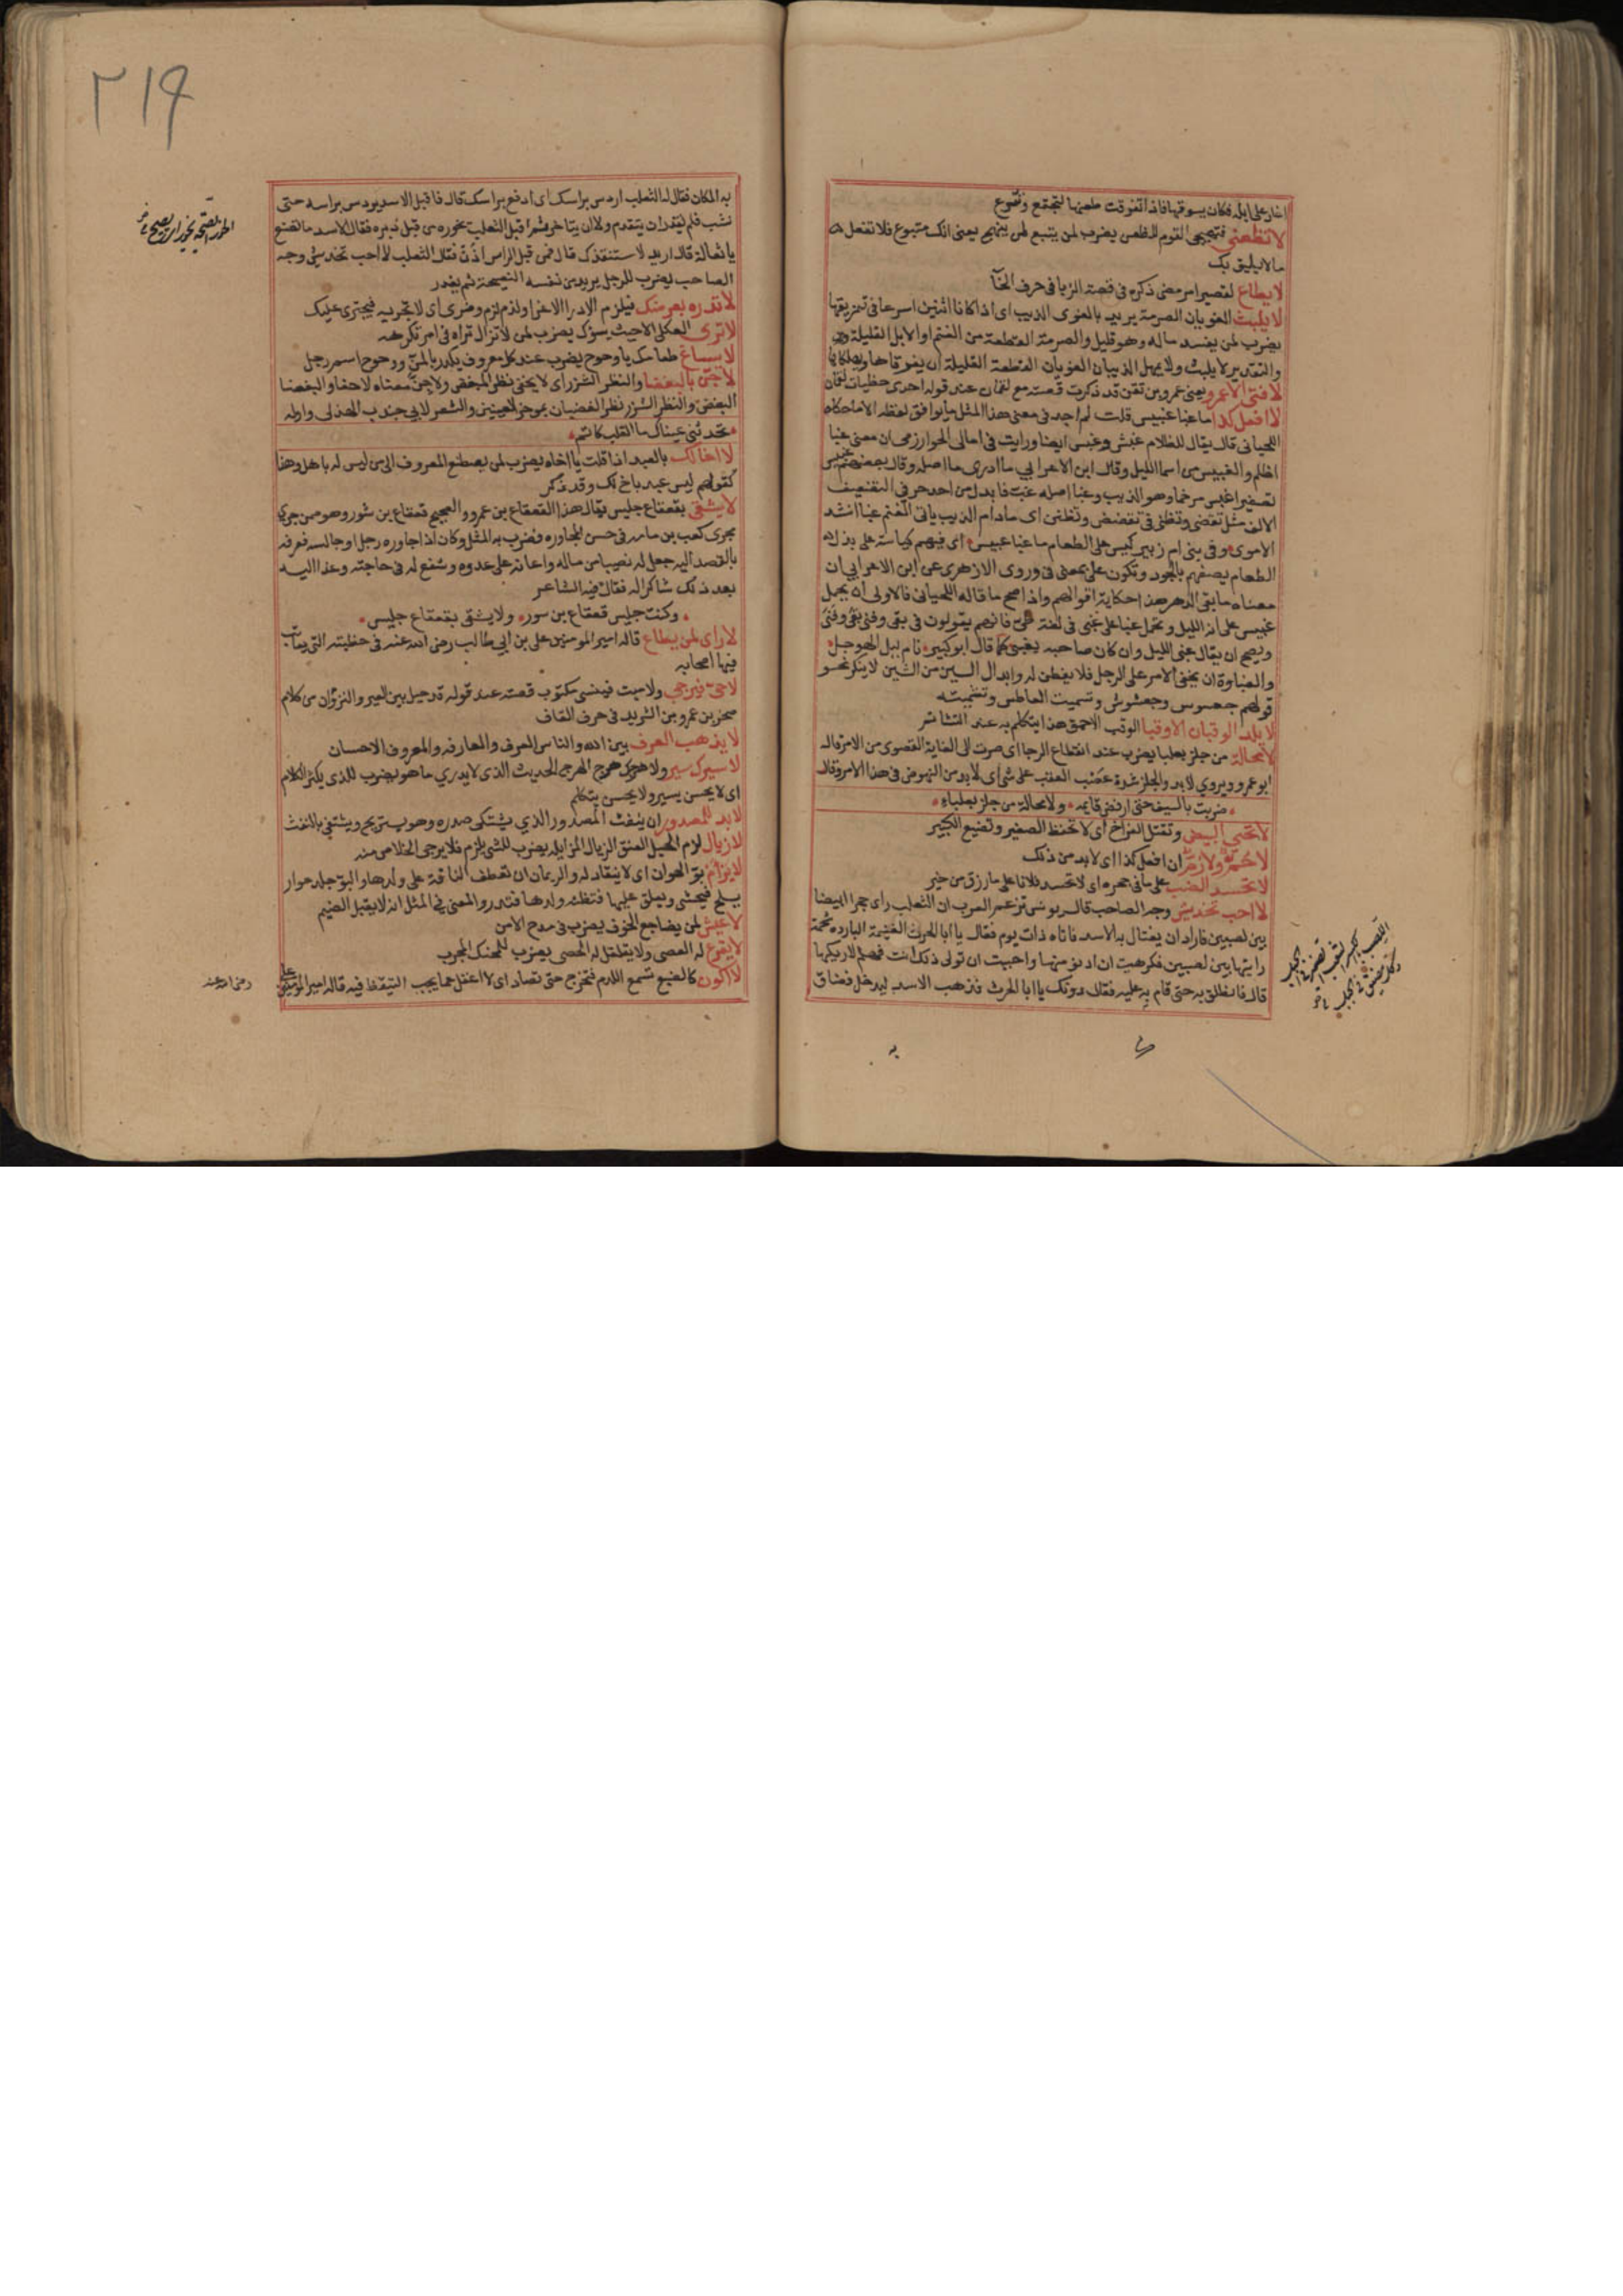 اغار على ابله فكان يسوقها فاذا تفرقت طعنها لتجتمع وتسرع
لا تظعني فتهيجي القوم للظعن يضرب لمن يتبع لمن ينهج يعني انك متبوع فلا تفعل
مالا يليق بك
لا يطاع لقصير امر مضى ذكره في قصة الزبا في حرف الخآ
لا يلبث الغويان الصرمة يريد بالغوى الذيب اى اذا كانا اثنين اسرعا في تمزيقها
يضرب لمن يفسد ماله وهو قليل والصرمة القطعة من الغنم او الابل القليلة
والتقدير لا يلبث ولا يمهل الذيبان الغويان القطعة القليلة ان يفرقاها
لا فتى الا عمرو يعني عمرو بن تقن قد ذكرت قصته مع لقمان عند قوله احدى حظيات لقمان
لا افعل كذا ما غبا غبيس قلت لم اجد في معنى هذا المثل ما يوافق لفظه الا ما حكاه
اللحياني قال يقال للظلام غبش وغبس ايضا ورايت في امالى الخوارزمى ان معنى غبا
اظلم والغبيس من اسما الليل وقال ابن الاعرابي ما ادرى ما اصله وقال بعضهم غبيس
تصغير اغبس مرخما وهو الذيب وغبا اصله غب فابدل من احد حرفي التضعيف
الالف مثل تقضى وتظنى في تقضض وتظنن اى مادام الذيب ياتى الغنم غبا انشد
الاموى وفي بنى ام زبير كيس على الطعام ما غبا غبيس اى فيهم كياسة على بذل
الطعام يصفهم بالجود وتكون على بمعنى في وروى الازهرى عن ابن الاعرابي ان
معناه ما بقى الدهر هذا حكاية اقوالهم واذا صح ما قاله اللحياني فالاولى ان يحمل
غبيس على انه الليل ويحمل غبا على غبى في لغة طى فانهم يقولون في بقى وفنى بقى وفنى
ويصح ان يقال غبى الليل وان كان صاحبه يغبى كما قال ابو كبير نام ليل الهوجل
والغباوة ان يخفى الامر على الرجل فلا يفطن له وابدال السين من الشين لا ينكر نحو
قولهم جعسوس وجعشوش وتسميت العاطس وتشميته
لا يلد الوقبان الا وقبا الوقب الاحمق هذا يتكلم به عند التشاتم
لا محالة من جلز بعلبا يضرب عند انقطاع الرجا اى صرت الى الغاية القصوى من الامر قاله
ابو عمرو ويروي لا بد والجلز شدة عصب العقب على شى اى لا بد من النهوض في هذا الامر وقال
ضربت بالسيف حتى ارفض قايمه ولا محالة من جلز بعلباء
لا تحي البيض وتقتل الفراخ اى لا تحفظ الصغير وتضيع الكبير
ان افعل كذا اى لا بد من ذلك
لا تحسد الضب على ما في جحره اى لا تحسد فلانا على ما رزق من خير
لا احب تخديش وجه الصاحب قال يونس تزعم العرب ان الثعلب راى حجرا ابيضا
بين لصبين فاراد ان يغتال به الاسد فاتاه ذات يوم فقال يا ابا الحرث الغنيمة الباردة شحمة
رايتها بين لصبين فكرهت ان ادنو منها واحببت ان تولى ذلك انت فهلم لاريكها
قال فانطلق به حتى قام به عليه فقال دونك يا ابا الحرث فذهب الاسد ليدخل فضاق
به
به المكان فقال له الثعلب اردس براسك اى ادفع براسك قال فاقبل الاسد يردس براسه حتى
نشب فلم يقدر ان يتقدم ولا ان يتاخر ثم اقبل الثعلب يخوره من قبل دبره فقال الاسد ما تصنع
يا ثعالة قال اريد لاستنقذك قال فمن قبل الراس اذن فقال الثعلب لا احب تخديش وجه
الصاحب يضرب للرجل يريد من نفسه النصيحة ثم يغدر
لا تدره بعرضك فيلزم الادرا الاغرا ولذم لزم وضرى اى لا تجربه فيجترى عليك
لا ترى العكلى الا حيث يسوك يضرب لمن لا تزال تراه في امر تكرهه
لا سباغ طعامك يا وحوح يضرب عند كل معروف يكدر بالمن ووحوح اسم رجل
لا جن بالبغضا والنظر الشزر اى لا يخفى نظر المبغض ولا جن معناه لا خفا والبغضا
البغض والنظر الشزر نظر الغضبان بموخر العينين والشعر لابي جندب الهذلى واوله
تحدثني عيناك ما القلب كاتم
لا اخا لك بالعبد اذا قلت يا اخاه يضرب لمن يصطنع المعروف الى من ليس له باهل وهذا
كقولهم ليس عبد باخ لك وقد ذكر
لا يشقى بقعقاع جليس يقال هذا القعقاع بن عمرو والصحيح قعقاع بن شور وهو ممن جرى
مجرى كعب بن مامه في حسن المجاوره فضرب به المثل وكان اذا جاوره رجل او جالسه فعرفه
بالقصد اليه جعل له نصيبا من ماله واعانه على عدوه وشفع له في حاجته وغدا اليه
بعد ذلك شاكرا له فقال فيه الشاعر
وكنت جليس قعقاع بن سور ولا يشقى بقعقاع جليس
لا راى لمن يطاع قاله امير المومنين على بن ابي طالب رضى الله عنه في خطبته التى يعاتب
فيها اصحابه
لا حى فيرجي ولا ميت فينسى مكتوب قصته عند قوله قد حيل بين العير والنزوان من كلام
صخر بن عمرو بن الشريد في حرف القاف
لا يذهب العرف بين الله والناس العرف والعارفه والمعروف الاحسان
لا سيرك سير ولا هرجك هرج الهرج الحديث الذى لا يدري ما هو يضرب للذى يكثر الكلام
اى لا يحسن يسير ولا يحسن يتكلم
لا بد للمصدور ان ينفث المصدور الذي يشتكى صدره وهو يستريح ويشتفي بالنفث
لا زيال لزم الحبل العنق الزيال المزايله يضرب للشى يلزم فلا يرجى الخلاص منه
لا يرام بو الهوان اى لا ينقاد له والريمان ان تعطف الناقة على ولدها والبو جلد حوار
يسلخ فيحشى ويعلق عليها فتظنه ولدها فتدر والمعنى في المثل انه لا يقبل الضيم
لا عيش لمن يضاجع الخوف يضرب في مدح الامن
لا يقرع له العصى ولا يقلقل له الحصى يضرب للمحنك المجرب
لا اكون كالضبع تسمع اللدم فتخرج حتى تصاد اى لا اغفل عما يجب التيقظ فيه قاله امير المومنين على
رضى الله عنه
٢١٩